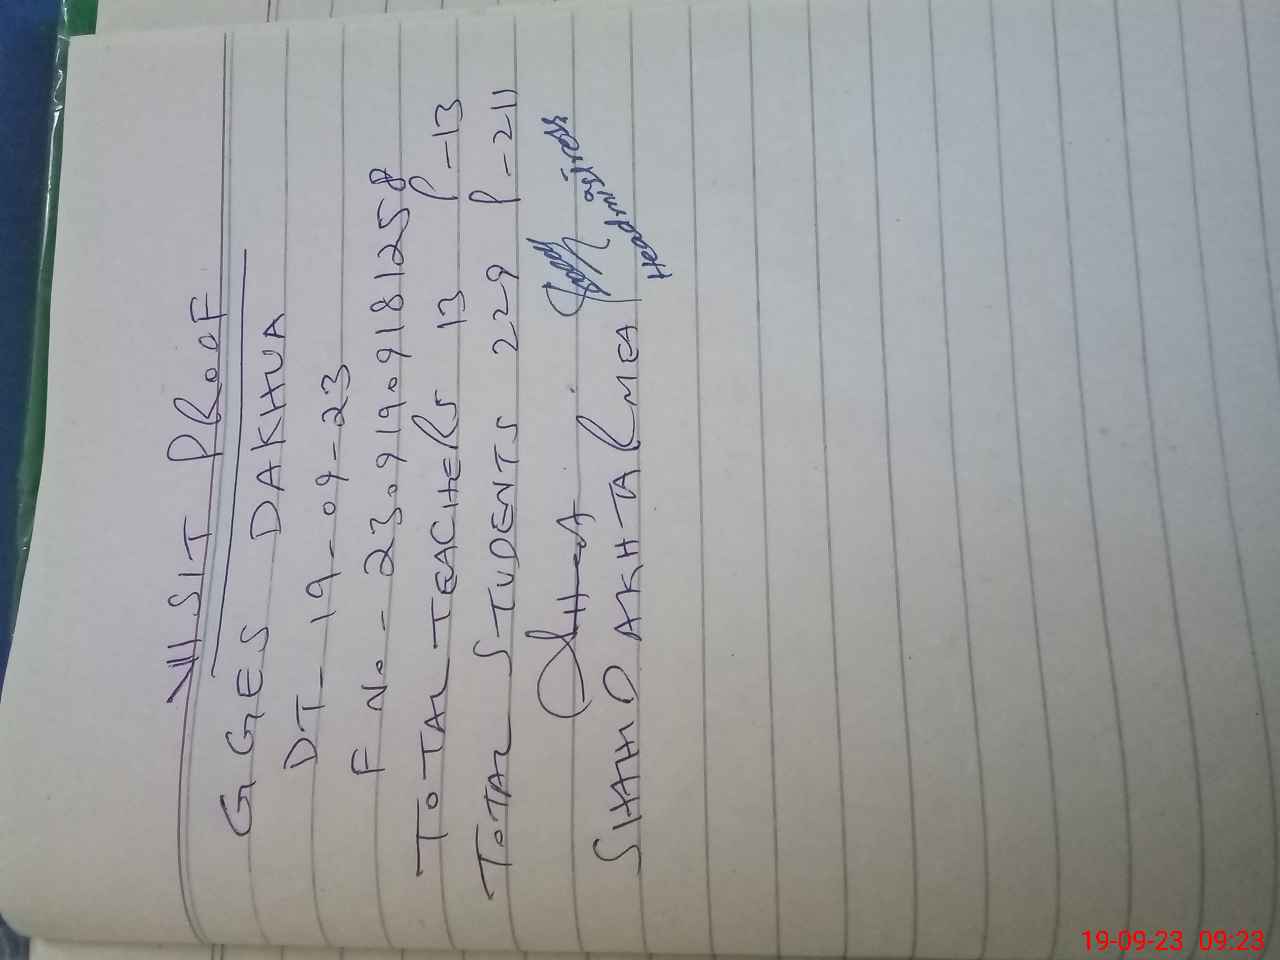 VISIT PROOF
GGES DAKHUA
DT-19-09-23
F No-23091909181258
TOTAL TEACHERS 13 P-13
TOTAL STUDENTS 229 P-211
SHAHID AKHTAR MEA
Headmistress
19-09-23 09:23